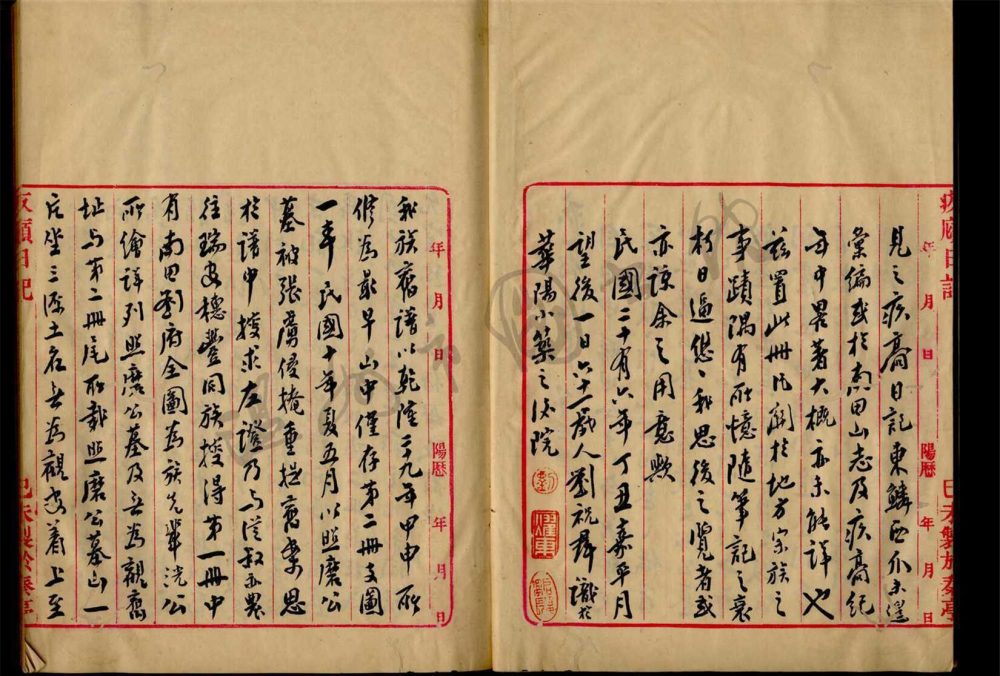 見之疚廎日記東鱗西爪未遑
彙編或於南田山志及疚廎紀
年中畧著大概亦未能詳也
茲置此冊凡關於地方宗族之
事蹟隅有所憶隨筆記之衰
朽日逼偬偬我思後之覽者或
亦諒余之用意歟
民國二十有六年丁丑嘉平月
望後一日六十一歲人劉祝羣識於
華陽小築之後院
我族舊譜以乾隆二十九年甲申所
修為最早山中僅存第二冊支圖
一本民國十年夏五月以照磨公
墓被張虜侵掩重提舊案思
於譜中搜求左證乃與從叔
往瑞安穗豐同族搜得第一冊中
有南田劉府全圖為族先輩洸公
所繪詳列照磨公墓及無為觀舊
址與第二冊尾所載照磨公墓山一
片坐三源土名無為觀安着上至
年 月 日 陽曆 年 月 日
年 月 日 陽曆 年 月 日